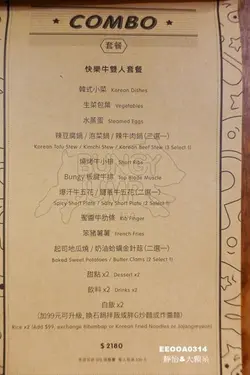 COMBO
套餐
快樂牛雙人套餐
韓式小菜 Korean Dishes
生菜包葉 Vegetables
水蒸蛋 Steamed Eggs
辣豆腐鍋 / 泡菜鍋 / 辣牛肉鍋 (三選一)
Korean Tofu Stew / Kimchi Stew / Korean Beef Stew (3 Select 1)
燒烤牛小排 Short Ribs
Bungy板腱牛排 Top Blade Muscle
Spicy Short Plate / Salty Short Plate (2 Select 1)
蜜糖牛肋條 Rib Finger
笨豬薯薯 French Fries
起司地瓜燒 / 奶油蛤蠣金針菇 (二選一)
Baked Sweet Potatoes / Butter Clams (2 Select 1)
甜點 x2 Dessert x2
飲料 x2 Drinks x2
白飯 x2
Rice x2 (Add $99, exchange Bibimbap or Korean Fried Noodles or Japangmakbi)
$ 2180
EEOOA0314
靜怡&大顆呆